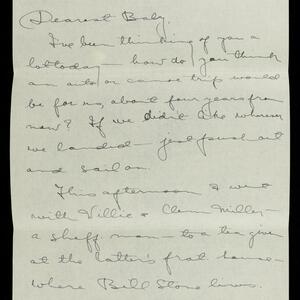 Dearest Baby,
I've been thinking of you a
lot today - how do you think
an auto or canoe trip would
be for us, about four years from
now? If we didn't like wherever
we landed - just push out
and sail on.
This afternoon I went
with Willie & Clem Miller -
a Sheff man - to a tea given
at the latter's frat house -
where Bill Stone lives.